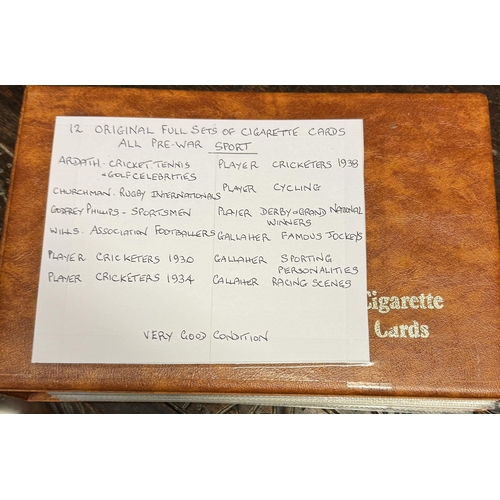 12 ORIGINAL FULL SETS OF CIGARETTE CARDS
ALL PRE-WAR SPORT
ARDATH - CRICKET, TENNIS
& GOLF CELEBRITIES
CHURCHMAN - RUGBY INTERNATIONALS
GODFREY PHILLIPS - SPORTSMEN
WILLS - ASSOCIATION FOOTBALLERS
PLAYER CRICKETERS 1930
PLAYER CRICKETERS 1934
PLAYER CRICKETERS 1938
PLAYER CYCLING
PLAYER DERBY & GRAND NATIONAL
WINNERS
GALLAHER FAMOUS JOCKEYS
GALLAHER SPORTING
PERSONALITIES
GALLAHER RACING SCENES
VERY GOOD CONDITION
Cigarette
Cards